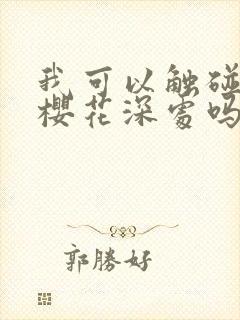 我可以触碰
樱花深处吗
郭勝好